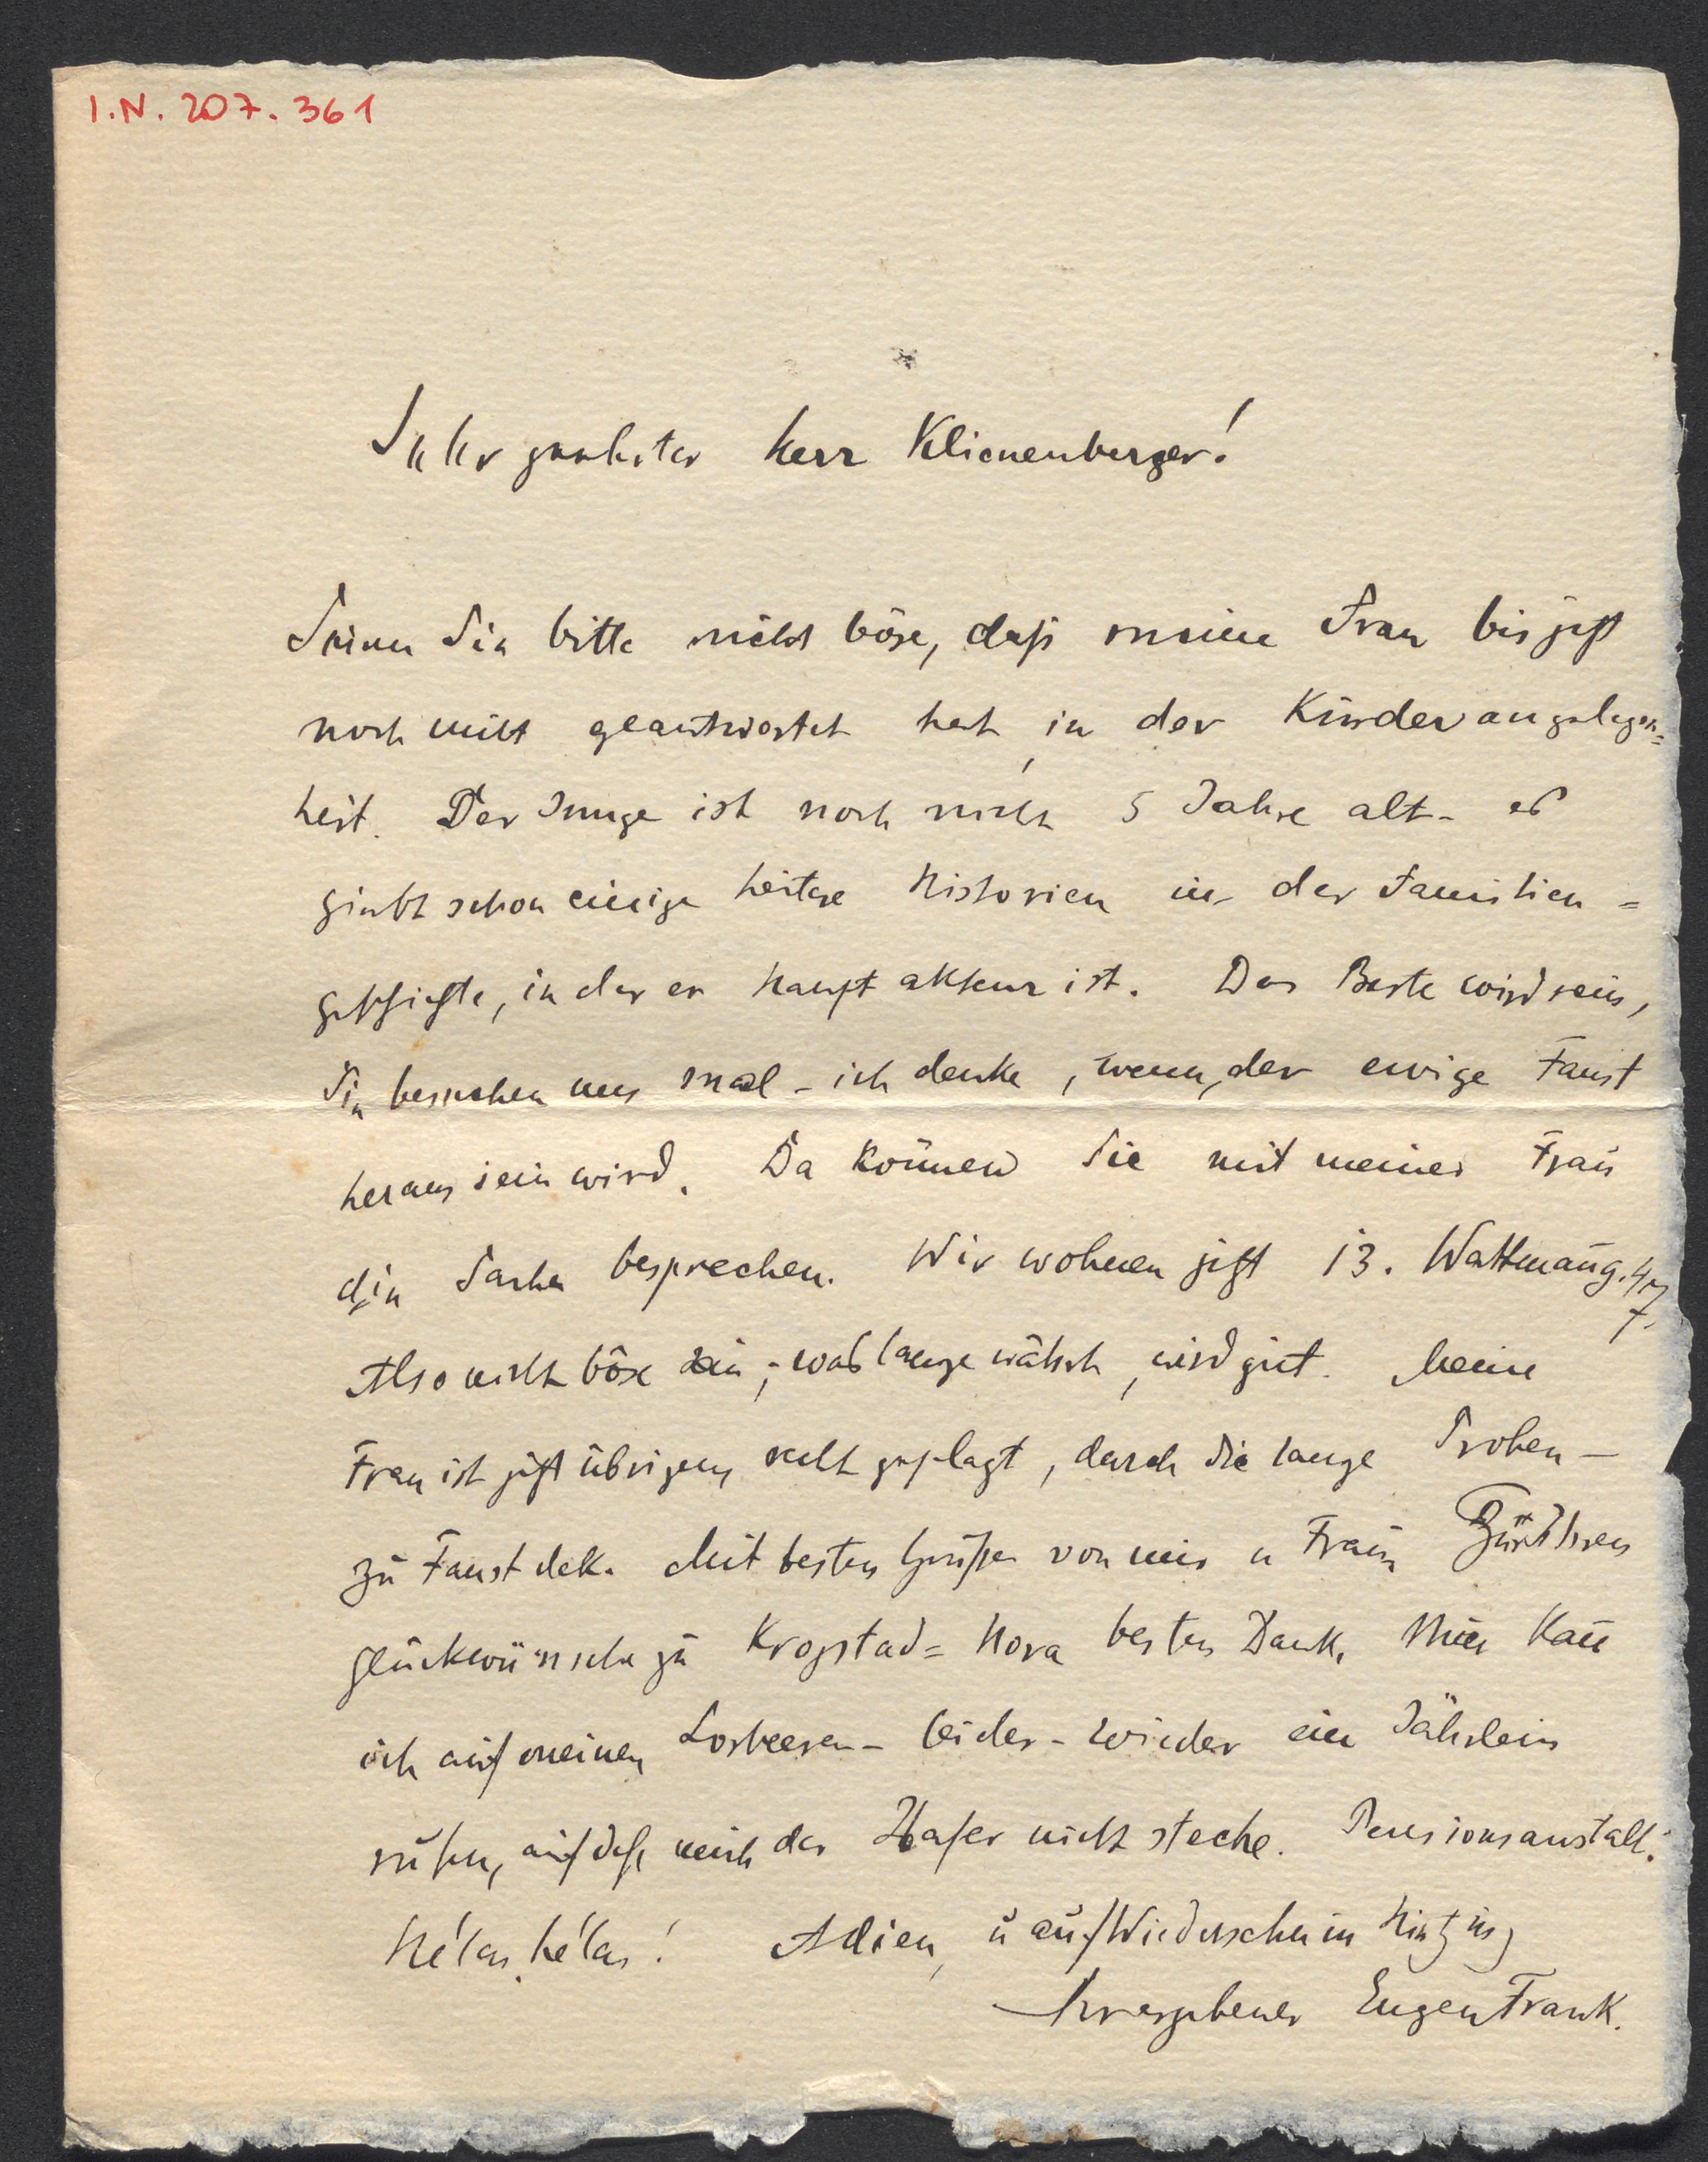 I.N. 207.361
Sehr geehrter Herr Klienenberger!
Seien Sie bitte nicht böse, daß meine Frau bis jetzt
noch nicht geantwortet hat, in der Kinderangelegen=
heit. Der Junge ist noch nicht 5 Jahre alt - es
giebt schon einige heitere Historien in der Familien=
geschichte, in der er Hauptakteur ist. Das Beste wird sein,
Sie besuchen uns mal - ich denke, wenn der ewige Faust
heraus sein wird. Da können Sie mit meiner Frau
die Sache besprechen. Wir wohnen jetzt 13. Wattmang. 47.
Also nicht böse sein; was lange währt, wird gut. Meine
Frau ist jetzt übrigens recht geplagt, durch die lange Proben-
zu Faust etc. Mit besten Grüßen von mir u Frau Für Ihren
glückwünsche zu Krogstad=Nora besten Dank. Nun kañ
ich auf meinen Lorbeeren - leider - wieder ein Jährlein
ruhen, auf daß mich der Hafer nicht steche. Pensionsanstalt.
Hélas, hélas! Adieu, u auf Wiedersehn in Hietzing
Ihr ergebener Eugen Frank.